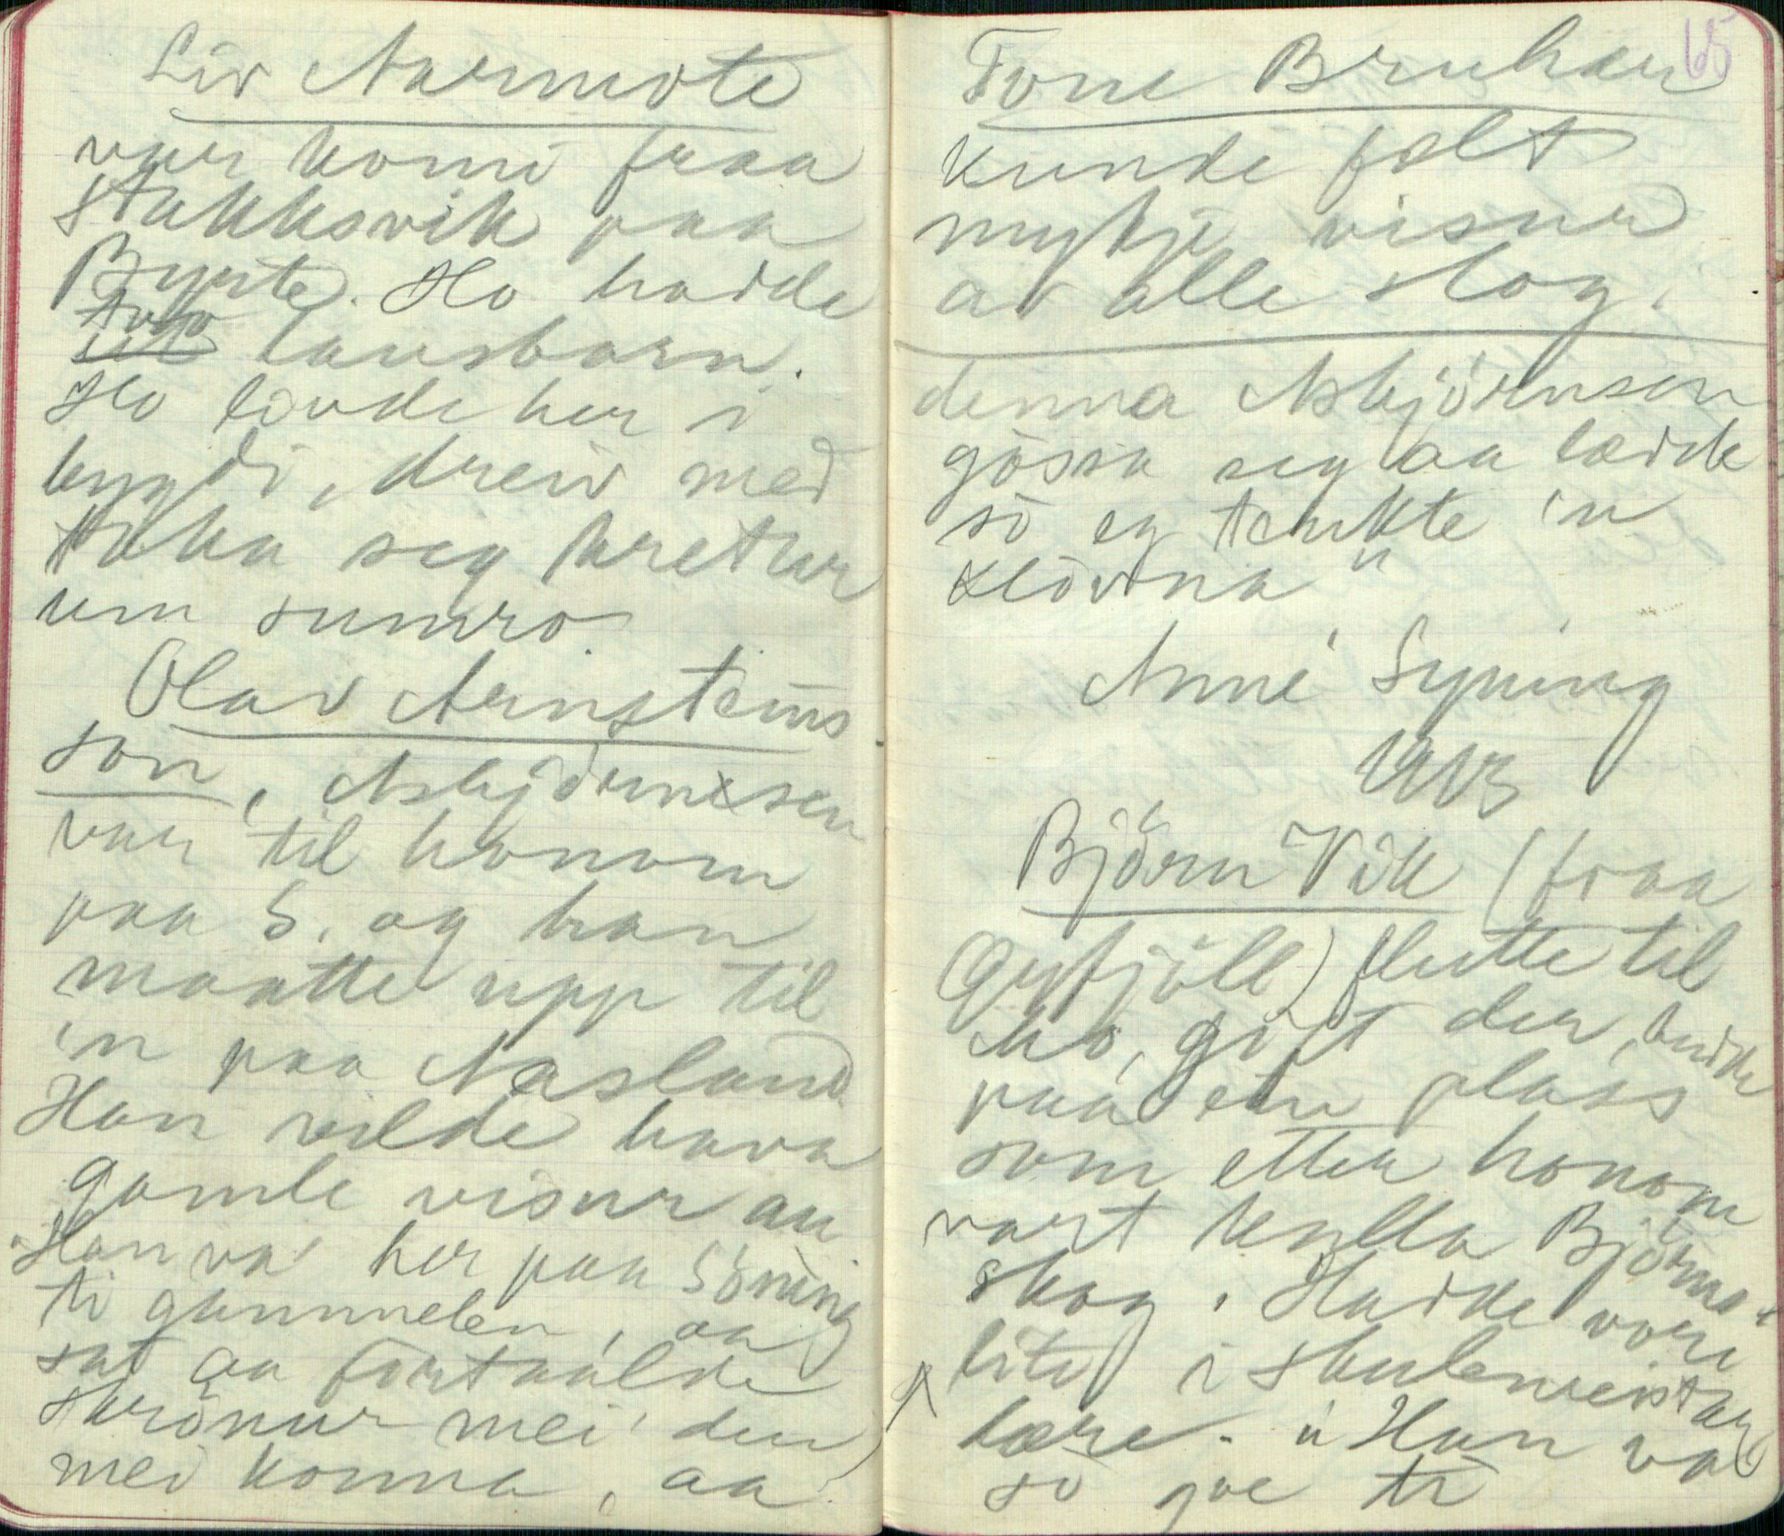 Liv Aarmote
var komi fraa
Stakksvik paa
Byrte. Ho hadde
tvo
lausborn.
Ho levde her i
bygdi, dreiv med
taka seg kretur
um sumro.
Olav Arnsteins
son, Asbjörnsen
var til honom
paa S. og han
maatte upp til
'n paa Aasland
Han vilde hava
gamle visur au
"Han va' her paa Söning
ti gammelen, aa
sat aa fortaalde
skrönur mei' den
mei konna, aa
65
Tone Bruhaen
kunde fælt
mykje visur
av alle slog.
denna Asbjörnsen
gössa seg aa lædde
so eg tenkte 'n
Klövna"
Anne Syning
1913
Björn Vik (fraa
Grjfjöll) flutte til
Mo, gift der, budde
paa ein plass
som etter honom
vart kylla Björnna-
skog. Hadde vori
liti i skulemeistar
lære. "Han va
so goe ti